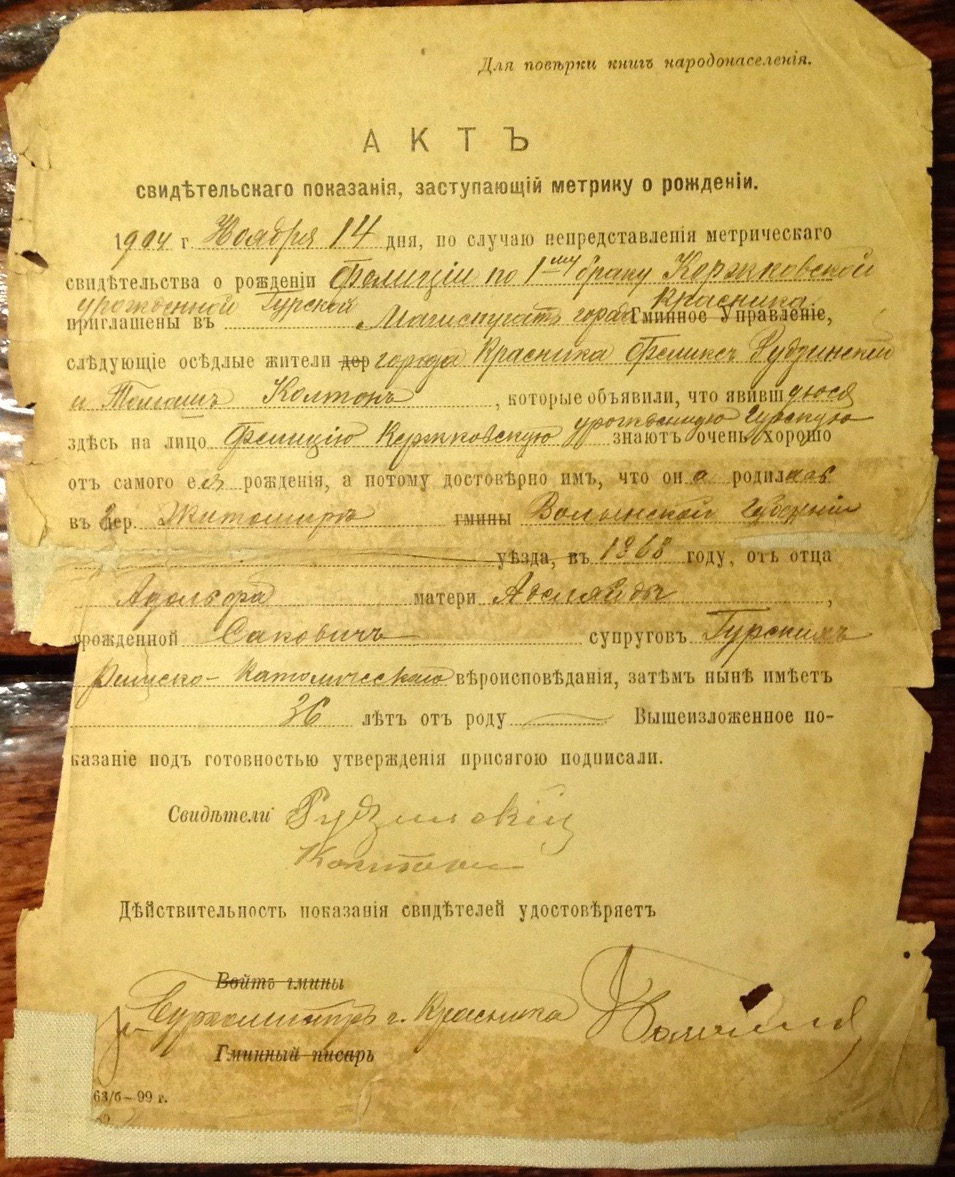 Для повѣрки книгъ народонаселенія.
АКТЪ
свидѣтельскаго показанія, заступающій метрику о рожденіи.
1904 г. Ноября 14 дня, по случаю непредставленія метрическаго
свидѣтельства о рожденіи Фелиціи по 1му браку Кержковской
урожденной Гурской Красника
приглашены въ Магистратъ города Гминное Управленіе,
слѣдующіе осѣдлые жители дер города Красника Феликсъ Рудзинскій
и Томашъ Колтонъ, которые объявили, что явившуюся
урожденную Гурскую
здѣсь на лицо Фелицію Кержковскую знаютъ очень хорошо
отъ самого ея рожденія, а потому достовѣрно имъ, что она родилась
въ дер. Житомирѣ гмины Волынской Губерніи
уѣзда, въ 1868 году, отъ отца
Адольфа матери Аделяиды,
урожденной Саковичъ супруговъ Гурскихъ
Римско-Католическаго вѣроисповѣданія, затѣмъ нынѣ имѣетъ
36 лѣтъ отъ роду Вышеизложенное по-
казаніе подъ готовностью утвержденія присягою подписали.
Свидѣтели Рудзинскій
Колтонъ
Дѣйствительность показанія свидѣтелей удостовѣряетъ
Войтъ гмины
Бургомистръ г. Красника
Гминный писарь
63/6—99 г.